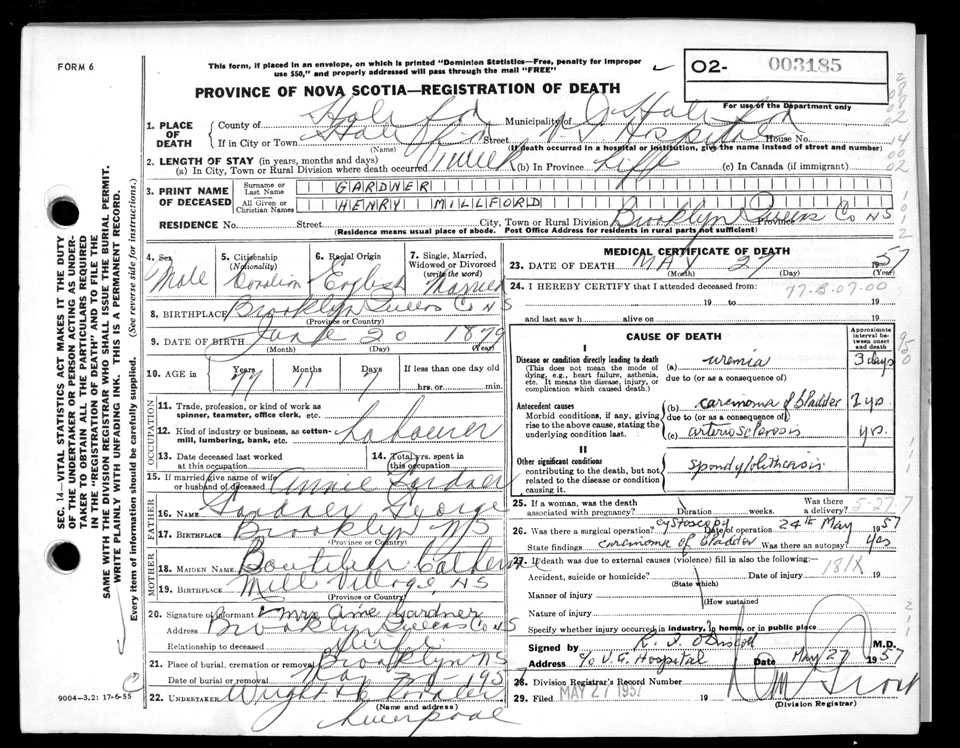 FORM 6
This form, if placed in an envelope, on which is printed "Dominion Statistics—Free, penalty for improper
use $50," and properly addressed will pass through the mail "FREE"
O2- 003185
PROVINCE OF NOVA SCOTIA—REGISTRATION OF DEATH
For use of the Department
1. PLACE OF DEATH
County of Halifax Municipality of Halifax
If in City or Town Halifax Street V G Hospital House No.
(Name) (If death occurred in a hospital or institution, give the name instead of street and number)
2. LENGTH OF STAY (in years, months and days)
(a) In City, Town or Rural Division where death occurred 1 week (b) In Province Life (c) In Canada (if immigrant)
3. PRINT NAME OF DECEASED
Surname or Last Name GARDNER
All Given or Christian Names HENRY MILLFORD
RESIDENCE No. Street City, Town or Rural Division Brooklyn Queens Co NS Province
(Residence means usual place of abode. Post Office Address for residents in rural parts not sufficient)
4. Sex Male
5. Citizenship (Nationality) Canadian
6. Racial Origin English
7. Single, Married, Widowed or Divorced (write the word) Married
8. BIRTHPLACE Brooklyn Queens Co NS
(Province or Country)
9. DATE OF BIRTH June 20 1879
(Month) (Day) (Year)
10. AGE IN Years 77 Months 11 Days 7 If less than one day old
hrs. or min.
OCCUPATION
11. Trade, profession, or kind of work as
spinner, teamster, office clerk, etc.
12. Kind of industry or business, as cotton-
mill, lumbering, bank, etc. Labourer
13. Date deceased last worked
at this occupation
14. Total yrs. spent in
this occupation
15. If married give name of wife
or husband of deceased Annie Gardner
FATHER
16. Name Gardner George
17. Birthplace Brooklyn NS
(Province or Country)
MOTHER
18. Maiden Name Boutilier Catherine
19. Birthplace Mill Village NS
(Province or Country)
20. Signature of informant Mrs Gardner
Address Brooklyn Queens Co NS
Relationship to deceased Wife
21. Place of burial, cremation or removal Brooklyn NS
Date of burial or removal May 195
22. Undertaker Wright
(Name and address)
Liverpool
MEDICAL CERTIFICATE OF DEATH
23. DATE OF DEATH MAY 27 1957
(Month) (Day) (Year)
24. I HEREBY CERTIFY that I attended deceased from: 77-B-07-00
19 to 19
and last saw h alive on 19
CAUSE OF DEATH
Approximate interval between onset and death
I
Disease or condition directly leading to death
(This does not mean the mode of dying, e.g., heart failure, asthenia, etc. It means the disease, injury, or complication which caused death.)
(a) uremia 3 days
due to (or as a consequence of)
Antecedent causes
Morbid conditions, if any, giving rise to the above cause, stating the underlying condition last.
(b) carcinoma of bladder 2 yrs.
due to (or as a consequence of)
(c) arteriosclerosis yrs.
II
Other significant conditions
contributing to the death, but not related to the disease or condition causing it.
spondylolithesis
25. If a woman, was the death associated with pregnancy? Duration weeks. Was there a delivery?
5-27
26. Was there a surgical operation? cystoscopy Date of operation 24th May 1957
State findings carcinoma of bladder Was there an autopsy? Yes
27. If death was due to external causes (violence) fill in also the following: 181X
Accident, suicide or homicide? Date of injury 19
(State which)
Manner of injury
(How sustained
Nature of injury
Specify whether injury occurred in industry, in home, or in public place
Signed by M.D.
Address c/o V.G. Hospital Date May 27 1957
28. Division Registrar's Record Number
29. Filed MAY 27 1957 19
(Division Registrar)
SEC. 14—VITAL STATISTICS ACT MAKES IT THE DUTY
OF THE UNDERTAKER OR PERSON ACTING AS UNDER-
TAKER TO OBTAIN ALL THE PARTICULARS REQUIRED
IN THE "REGISTRATION OF DEATH" AND TO FILE THE
SAME WITH THE DIVISION REGISTRAR WHO SHALL ISSUE THE BURIAL PERMIT.
WRITE PLAINLY WITH UNFADING INK. THIS IS A PERMANENT RECORD.
Every item of information should be carefully supplied. (See reverse side for instructions.)
9004-3.2: 17-6-55